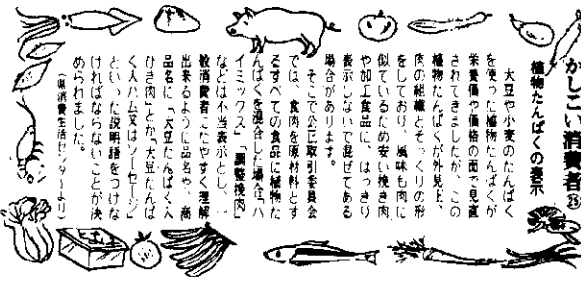 かしこい消費者
植物たんぱくの表示
大豆や小麦のたんぱく
を使った植物たんぱくが
栄養価や価格の面で見直
されてきましたが、この
植物たんぱくが外見上、
肉の組織とそっくりの形
をしており、風味も肉に
似ているため安い挽き肉
や加工食品に、はっきり
表示しないで混ぜてある
場合があります。
そこで公正取引委員会
では、食肉を原材料とす
るすべての食品に植物た
んぱくを混合した場合「ハ
イミックス」「調整挽肉」
などは不当表示とし、一
般消費者にたやすく理解
出来るように品名や、商
品名に「大豆たんぱく入
ひき肉」とか「大豆たんぱ
く入ハム又はソーセージ」
といった説明語をつけな
ければならないことが決
められました。
(県消費生活センターより)